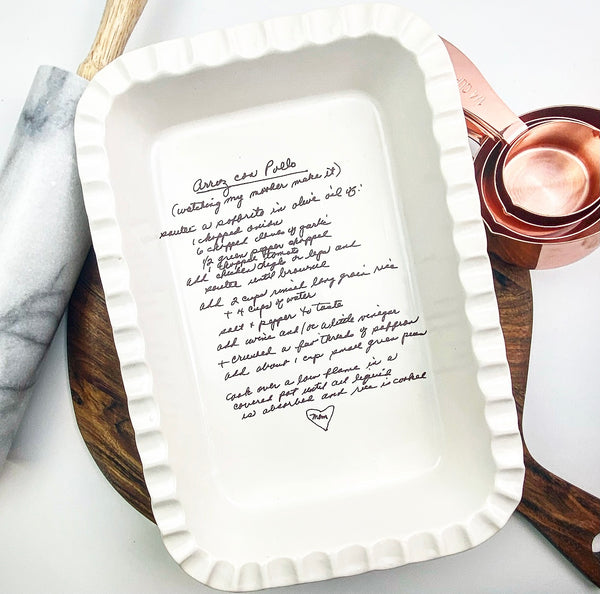 Arroz con Pollo
(watching my mother make it)
sauter a soffrito in olive oil of:
1 chopped onion
6 chopped cloves of garlic
1/2 green pepper chopped
1 chopped tomato
add chicken thighs or legs and
sauter until browned
add 2 cups small long grain rice
+ 4 cups of water
salt + pepper to taste
add wine and/or a little vinegar
+ crushed a few threads of saffron
add about 1 cup small green peas
cook over a low flame in a
covered pot until all liquid
is absorbed and rice is cooked
Mom